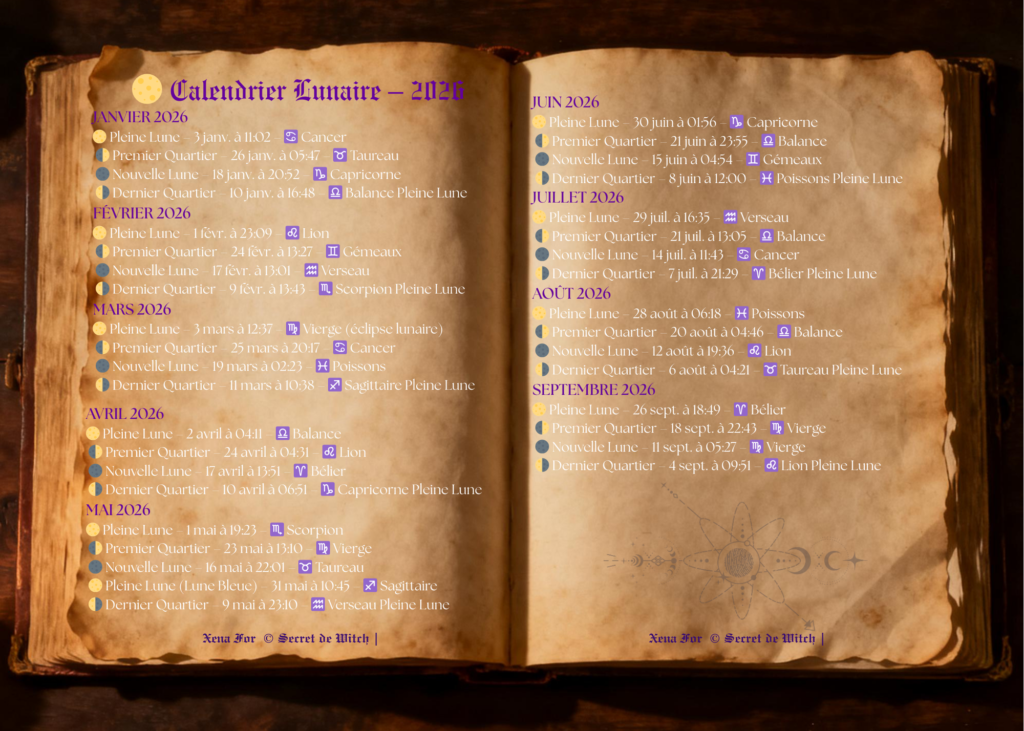 🌕 Calendrier Lunaire – 2026
JANVIER 2026
🌕 Pleine Lune – 3 janv. à 11:02 – ♋ Cancer
🌓 Premier Quartier – 26 janv. à 05:47 – ♉ Taureau
🌑 Nouvelle Lune – 18 janv. à 20:52 – ♑ Capricorne
🌗 Dernier Quartier – 10 janv. à 16:48 – ♎ Balance Pleine Lune
FÉVRIER 2026
🌕 Pleine Lune – 1 févr. à 23:09 – ♌ Lion
🌓 Premier Quartier – 24 févr. à 13:27 – ♊ Gémeaux
🌑 Nouvelle Lune – 17 févr. à 13:01 – ♒ Verseau
🌗 Dernier Quartier – 9 févr. à 13:43 – ♏ Scorpion Pleine Lune
MARS 2026
🌕 Pleine Lune – 3 mars à 12:37 – ♍ Vierge (éclipse lunaire)
🌓 Premier Quartier – 25 mars à 20:17 – ♋ Cancer
🌑 Nouvelle Lune – 19 mars à 02:23 – ♓ Poissons
🌗 Dernier Quartier – 11 mars à 10:38 – ♐ Sagittaire Pleine Lune
AVRIL 2026
🌕 Pleine Lune – 2 avril à 04:11 – ♎ Balance
🌓 Premier Quartier – 24 avril à 04:31 – ♌ Lion
🌑 Nouvelle Lune – 17 avril à 13:51 – ♈ Bélier
🌗 Dernier Quartier – 10 avril à 06:51 – ♑ Capricorne Pleine Lune
MAI 2026
🌕 Pleine Lune – 1 mai à 19:23 – ♏ Scorpion
🌓 Premier Quartier – 23 mai à 13:10 – ♍ Vierge
🌑 Nouvelle Lune – 16 mai à 22:01 – ♉ Taureau
🌕 Pleine Lune (Lune Bleue) – 31 mai à 10:45 – ♐ Sagittaire
🌗 Dernier Quartier – 9 mai à 23:10 – ♒ Verseau Pleine Lune
Xena For © Secret de Witch |
JUIN 2026
🌕 Pleine Lune – 30 juin à 01:56 – ♑ Capricorne
🌓 Premier Quartier – 21 juin à 23:55 – ♎ Balance
🌑 Nouvelle Lune – 15 juin à 04:54 – ♊ Gémeaux
🌗 Dernier Quartier – 8 juin à 12:00 – ♓ Poissons Pleine Lune
JUILLET 2026
🌕 Pleine Lune – 29 juil. à 16:35 – ♒ Verseau
🌓 Premier Quartier – 21 juil. à 13:05 – ♎ Balance
🌑 Nouvelle Lune – 14 juil. à 11:43 – ♋ Cancer
🌗 Dernier Quartier – 7 juil. à 21:29 – ♈ Bélier Pleine Lune
AOÛT 2026
🌕 Pleine Lune – 28 août à 06:18 – ♓ Poissons
🌓 Premier Quartier – 20 août à 04:46 – ♎ Balance
🌑 Nouvelle Lune – 12 août à 19:36 – ♌ Lion
🌗 Dernier Quartier – 6 août à 04:21 – ♉ Taureau Pleine Lune
SEPTEMBRE 2026
🌕 Pleine Lune – 26 sept. à 18:49 – ♈ Bélier
🌓 Premier Quartier – 18 sept. à 22:43 – ♍ Vierge
🌑 Nouvelle Lune – 11 sept. à 05:27 – ♍ Vierge
🌗 Dernier Quartier – 4 sept. à 09:51 – ♌ Lion Pleine Lune
Xena For © Secret de Witch |